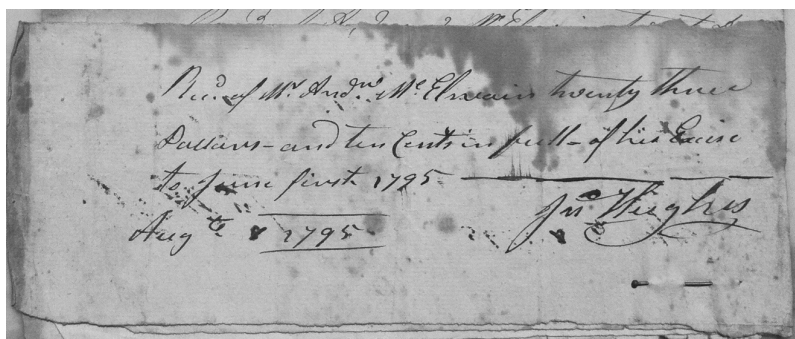 Rec.d of Mr. And.w McElwain twenty three
Dollars - and ten Cents in full - of his Excise
to June first 1795
Aug.t 8 1795 Jno Hughes